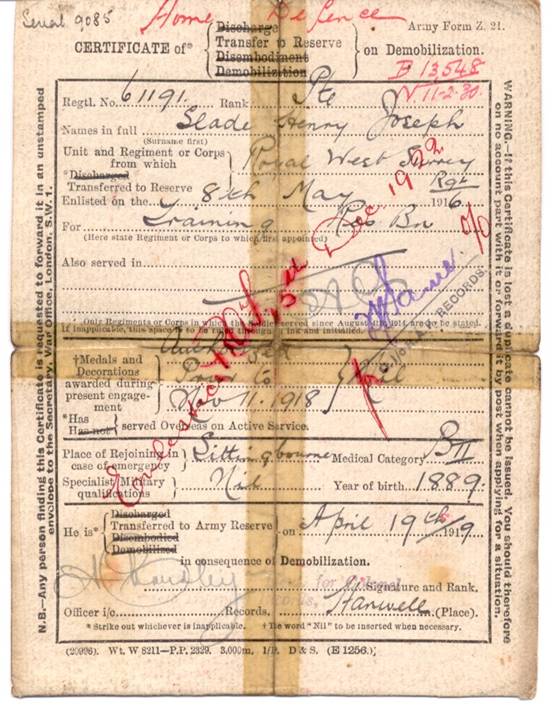 Serial 9085
Home Defence
Army Form Z. 21.
CERTIFICATE of* Discharge Transfer to Reserve Disembodiment Demobilization on Demobilization.
B 13548
V. 11-2-30.
Regtl. No. 61191. Rank Pte
Names in full Slade Henry Joseph
(Surname first)
Unit and Regiment or Corps from which Royal West Surrey Rgt
*Discharged
Transferred to Reserve
Enlisted on the 8th May 1916.
For Training Res Bn
(Here state Regiment or Corps to which first appointed)
Also served in
Dec 1922
RECORDS.
*Only Regiments or Corps in which the soldier served since August 4th, 1914, are to be stated.
If inapplicable, this space is to be ruled through in ink and initialled.
†Medals and Decorations awarded during present engagement
Nov 11. 1918
*Has
Has not served Overseas on Active Service.
Place of Rejoining in case of emergency Sittingbourne Medical Category BII
Specialist Military qualifications Nil Year of birth 1889.
He is* Discharged Transferred to Army Reserve Disembodied Demobilized on April 19th 1919.
in consequence of Demobilization.
for Colonel
Signature and Rank.
Officer i/c Records. Hanwell (Place).
* Strike out whichever is inapplicable. † The word "Nil" to be inserted when necessary.
(20996). Wt. W 8211—P.P. 2329. 3,000m. 1/19. D & S. (E 1256.)
N.B.—Any person finding this Certificate is requested to forward it in an unstamped
envelope to the Secretary, War Office, London, S.W. 1.
WARNING.—If this Certificate is lost a duplicate cannot be issued. You should therefore
on no account part with it or forward it by post when applying for a situation.